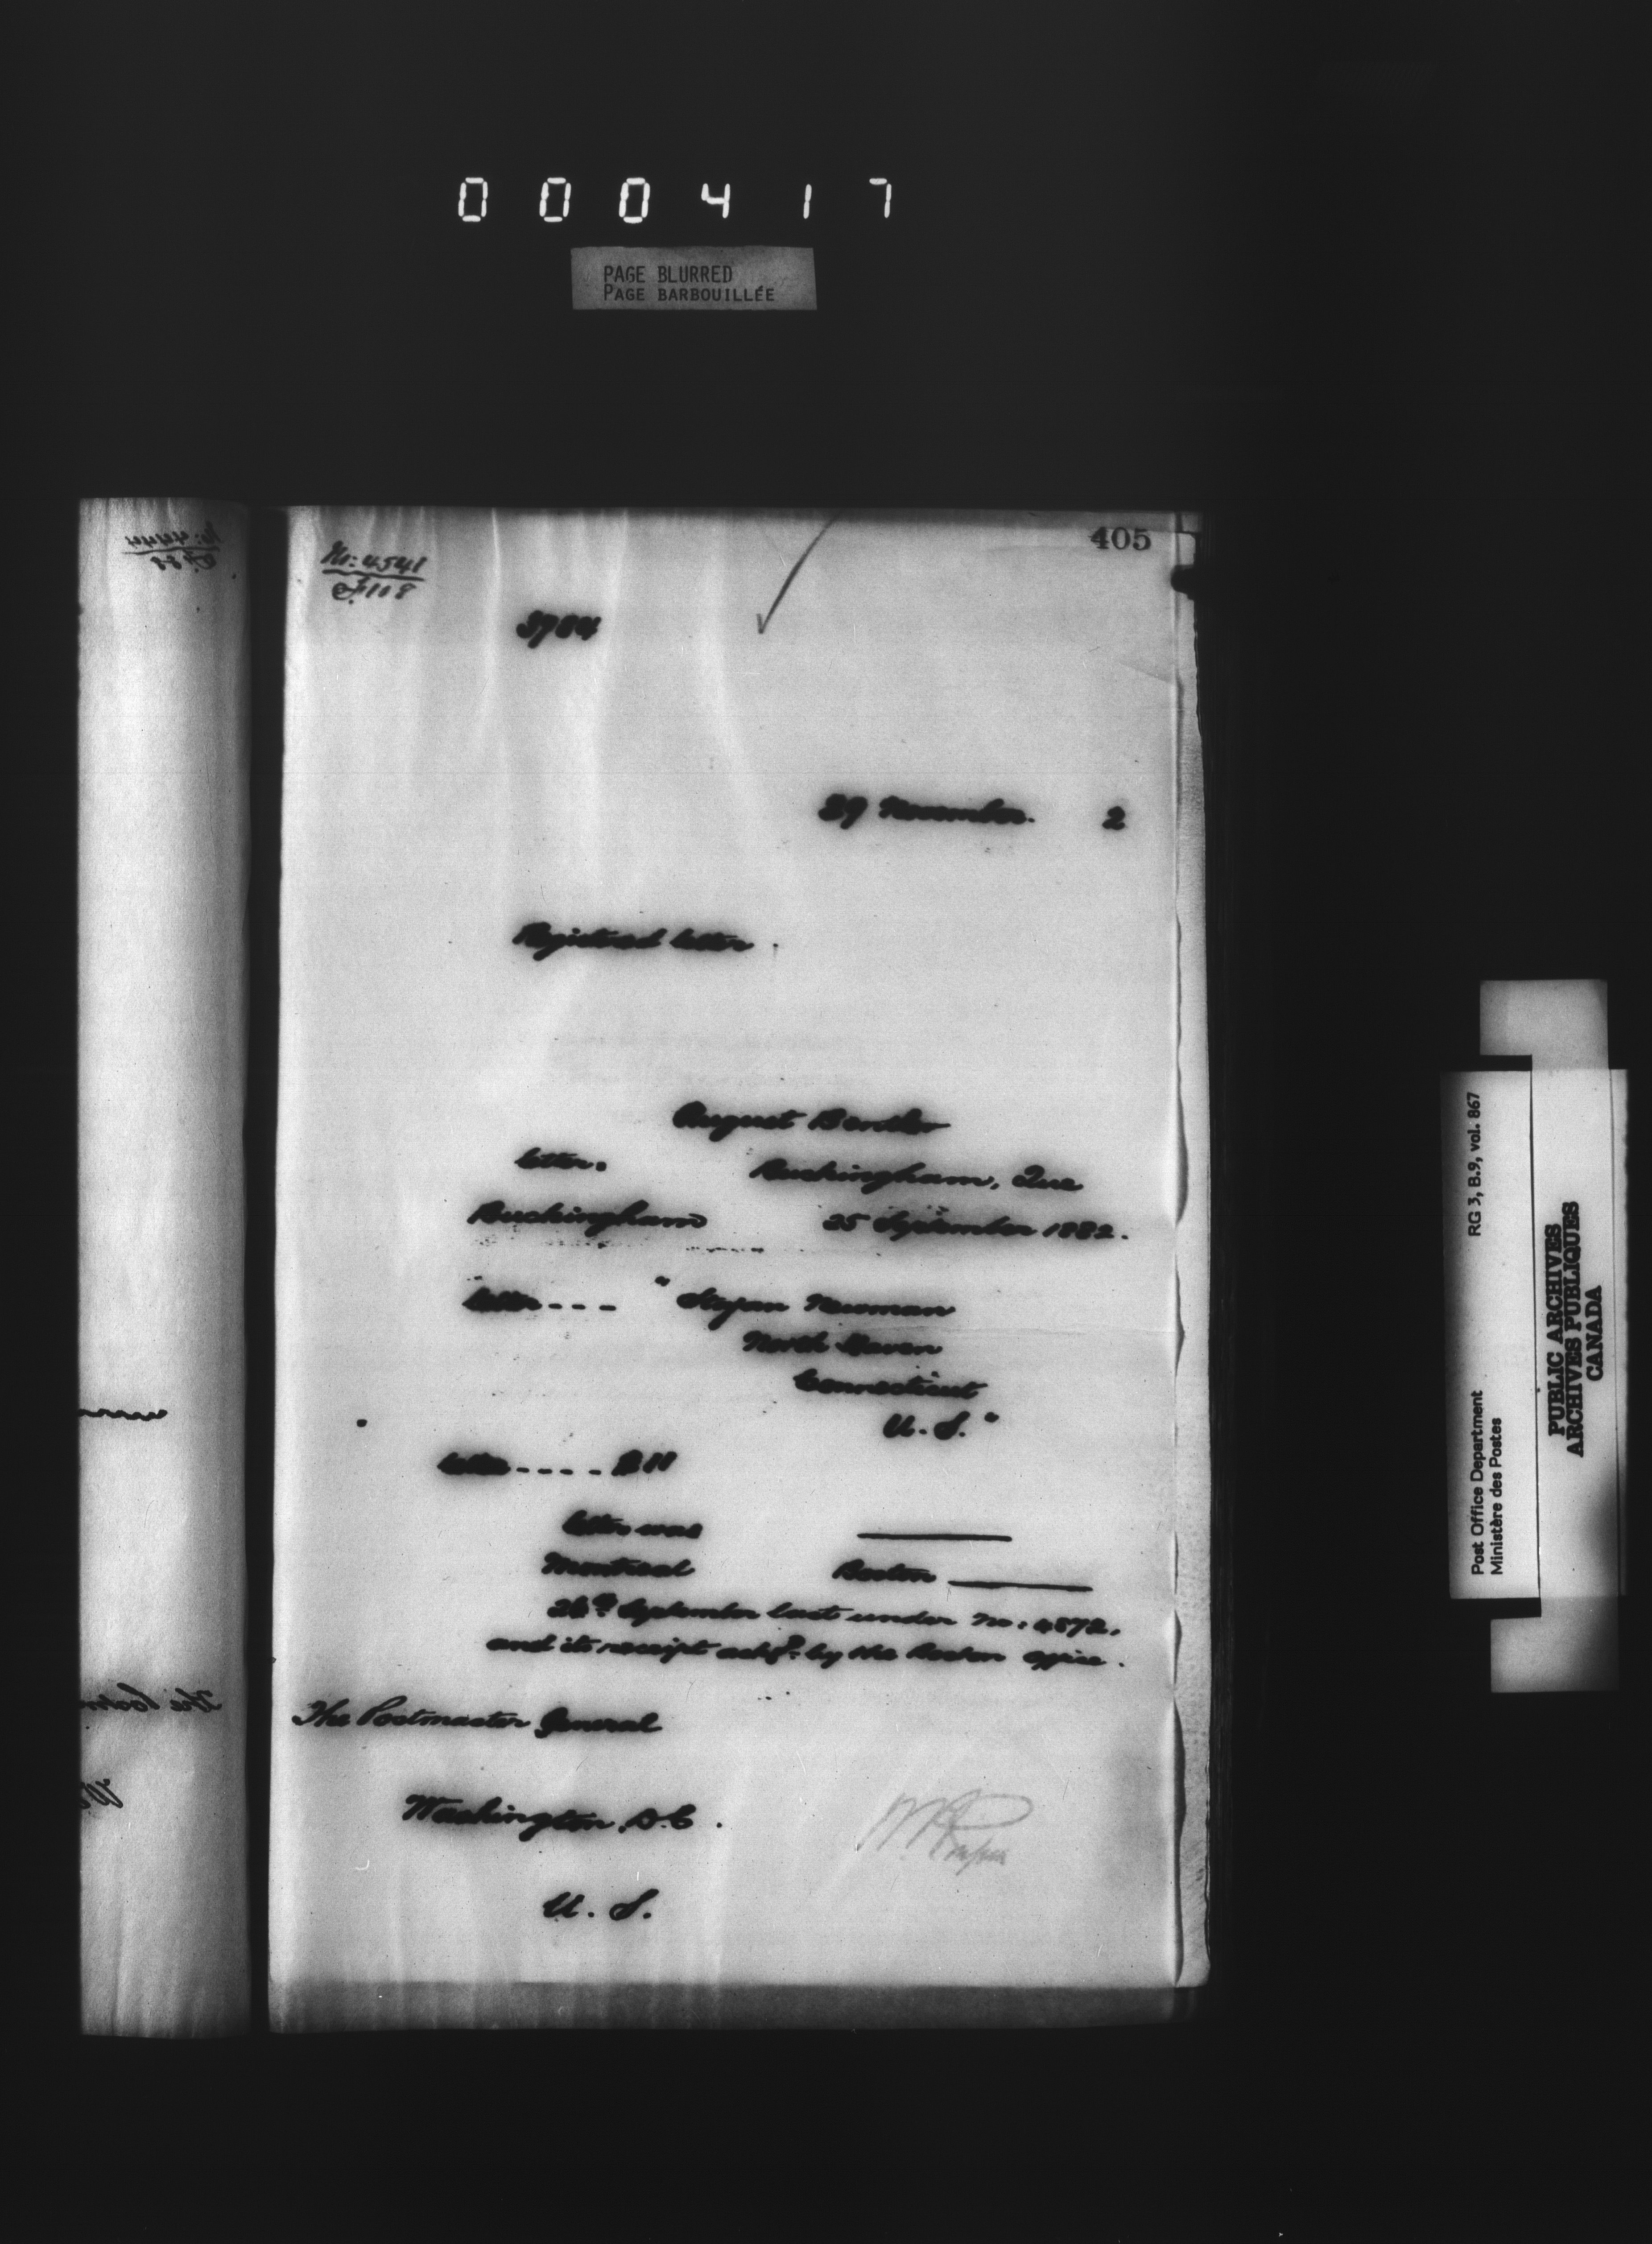 000417
PAGE BLURRED
PAGE BARBOUILLÉE
405
No: 4541
F 118
3784
29 November. 2
Registered letter.
August
letter. Buckingham, Que
Buckingham 25 September 1882.
letter---- "Stefan Newman
North Haven
Connecticut
U. S."
letter-----
letter was
Montreal Boston
26th September last under No: 4572.
and its receipt ackd. by the Boston office.
The Postmaster General
Washington. D.C.
U. S.
Post Office Department RG 3, B.9, vol. 867
Ministère des Postes
PUBLIC ARCHIVES
ARCHIVES PUBLIQUES
CANADA